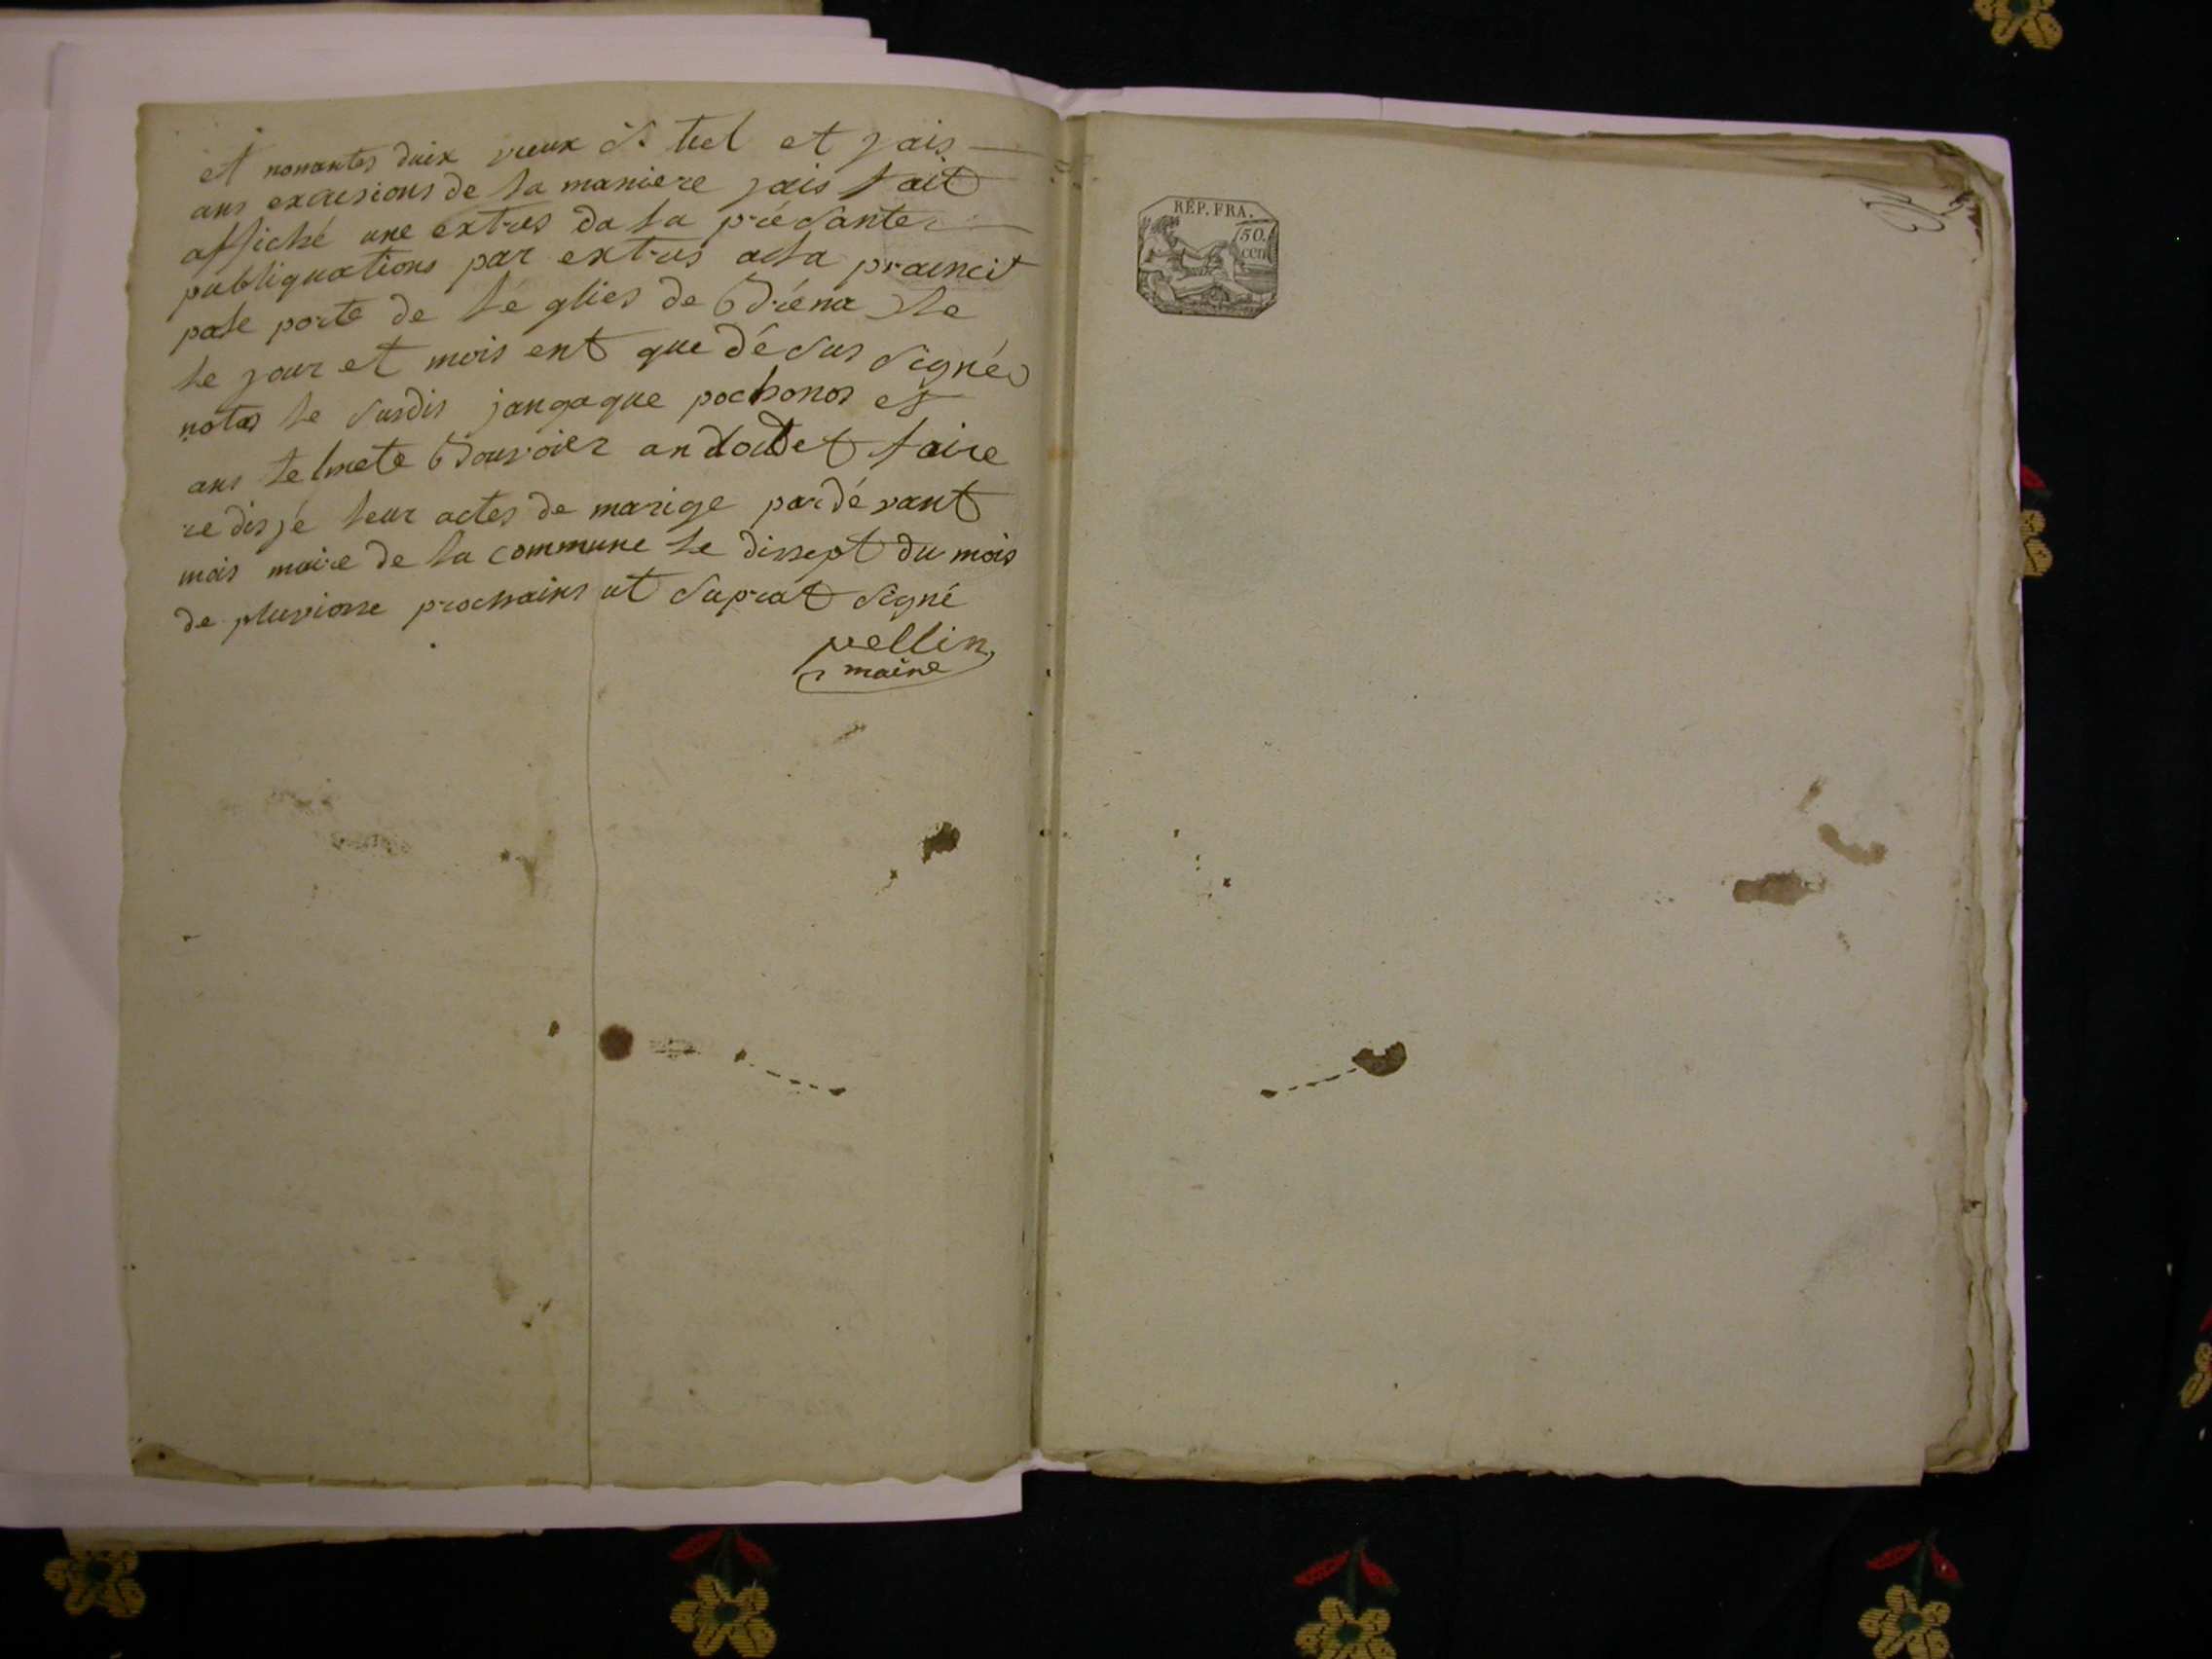 et nonantes duix vieux st tiel et jais
ans exacusions de la maniere jais fait
affiché une extres da la présante
publiquations par extres alla prainci
pale porte de lé glies de Bréna le
le jour et mois ent que désus signés
notas le susdis jangaque pochonos et
ans telmete Bouvoier an doibet faire
redisjé leur actes de marige pardévant
mois maire de la commune le dissept du mois
de pluviosse prochains ut suprat signé
vellin
maire
RÉP. FRA.
50.
cen